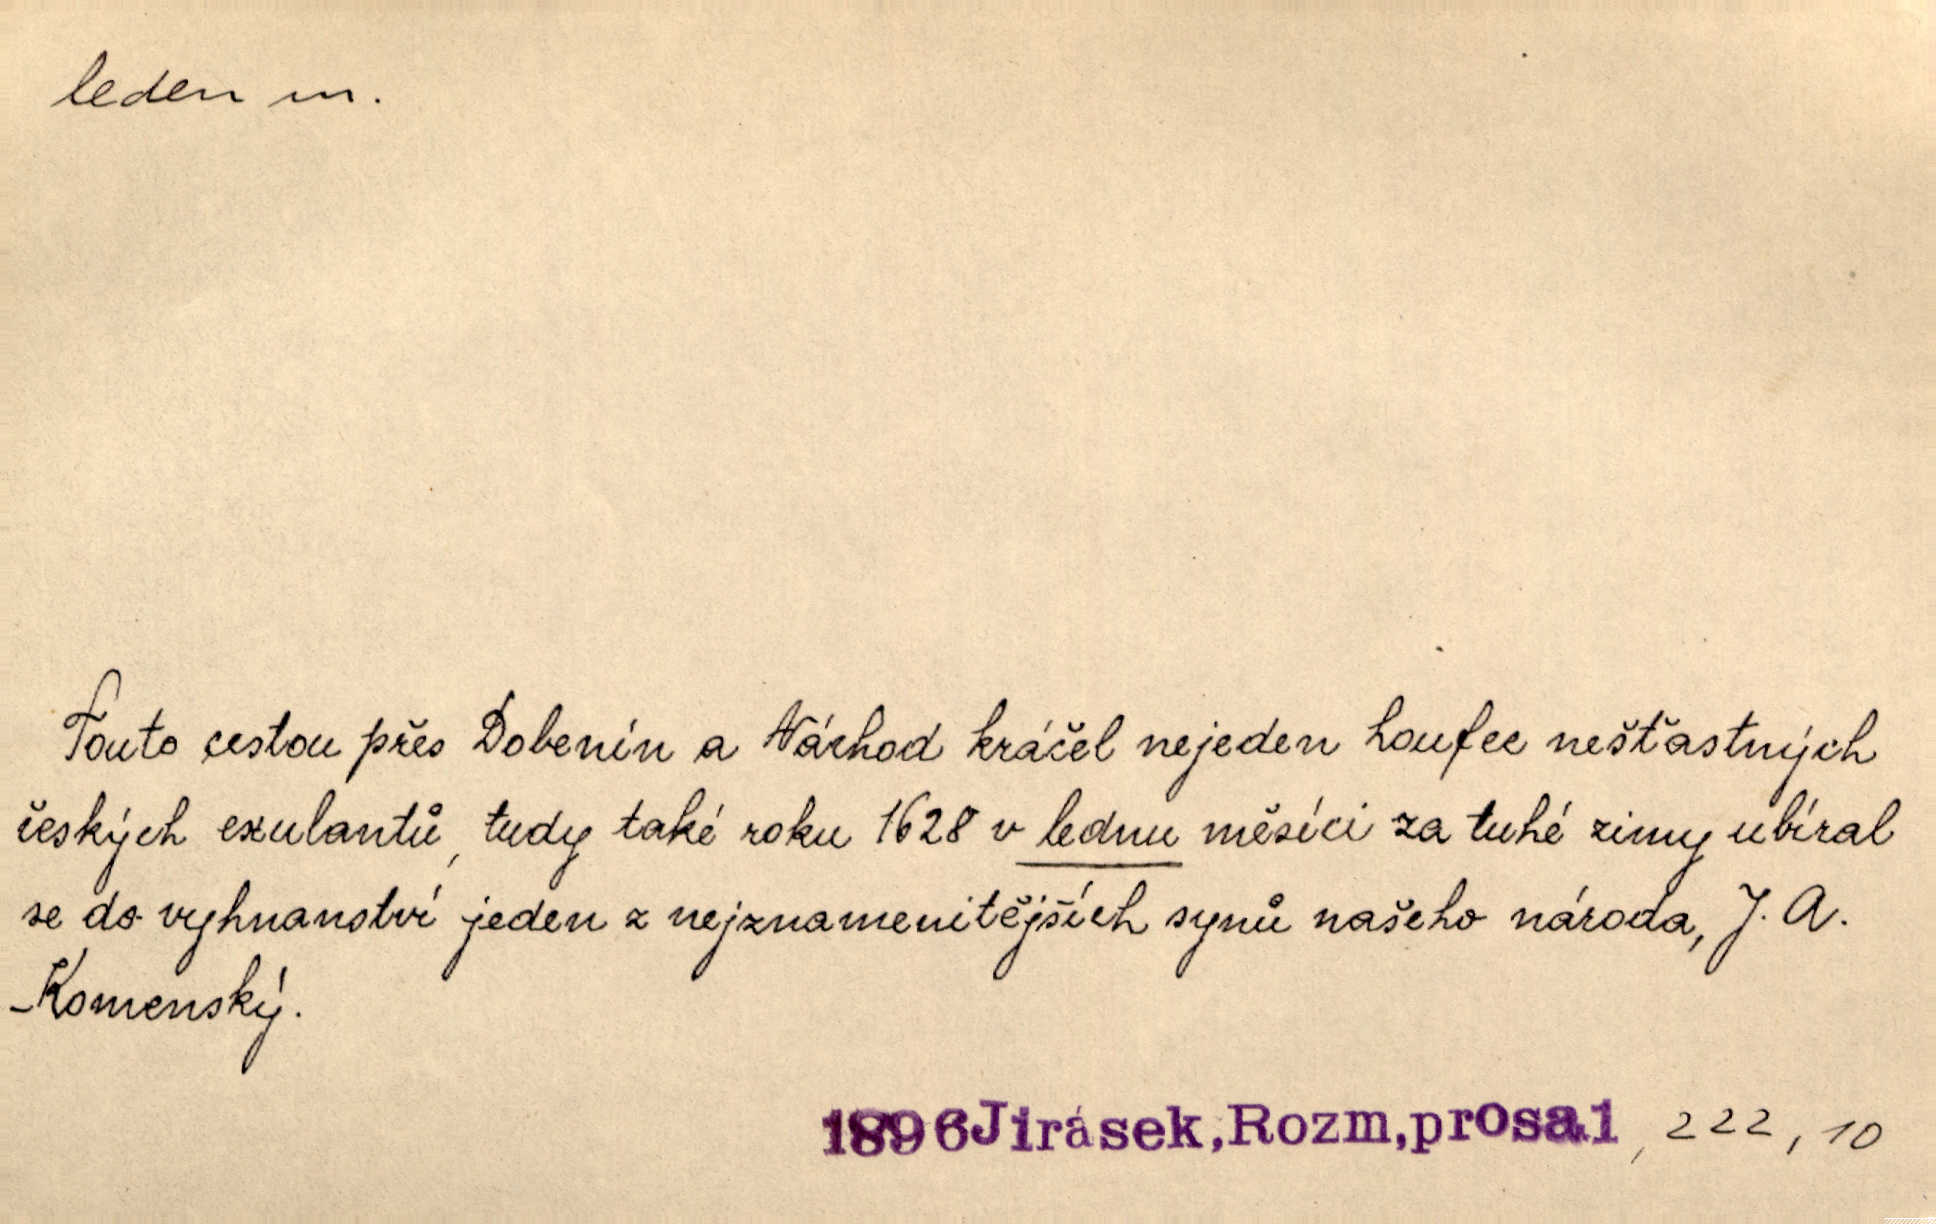 leden m.
Touto cestou přes Dobenín a Náchod kráčel nejeden houfec nešťastných
českých exulantů, tudy také roku 1628 v lednu měsíci za tuhé zimy ubíral
se do vyhnanství jeden z nejznamenitějších synů našeho národa, J. A.
Komenský.
1896 Jirásek, Rozm, prosa 1, 222, 10